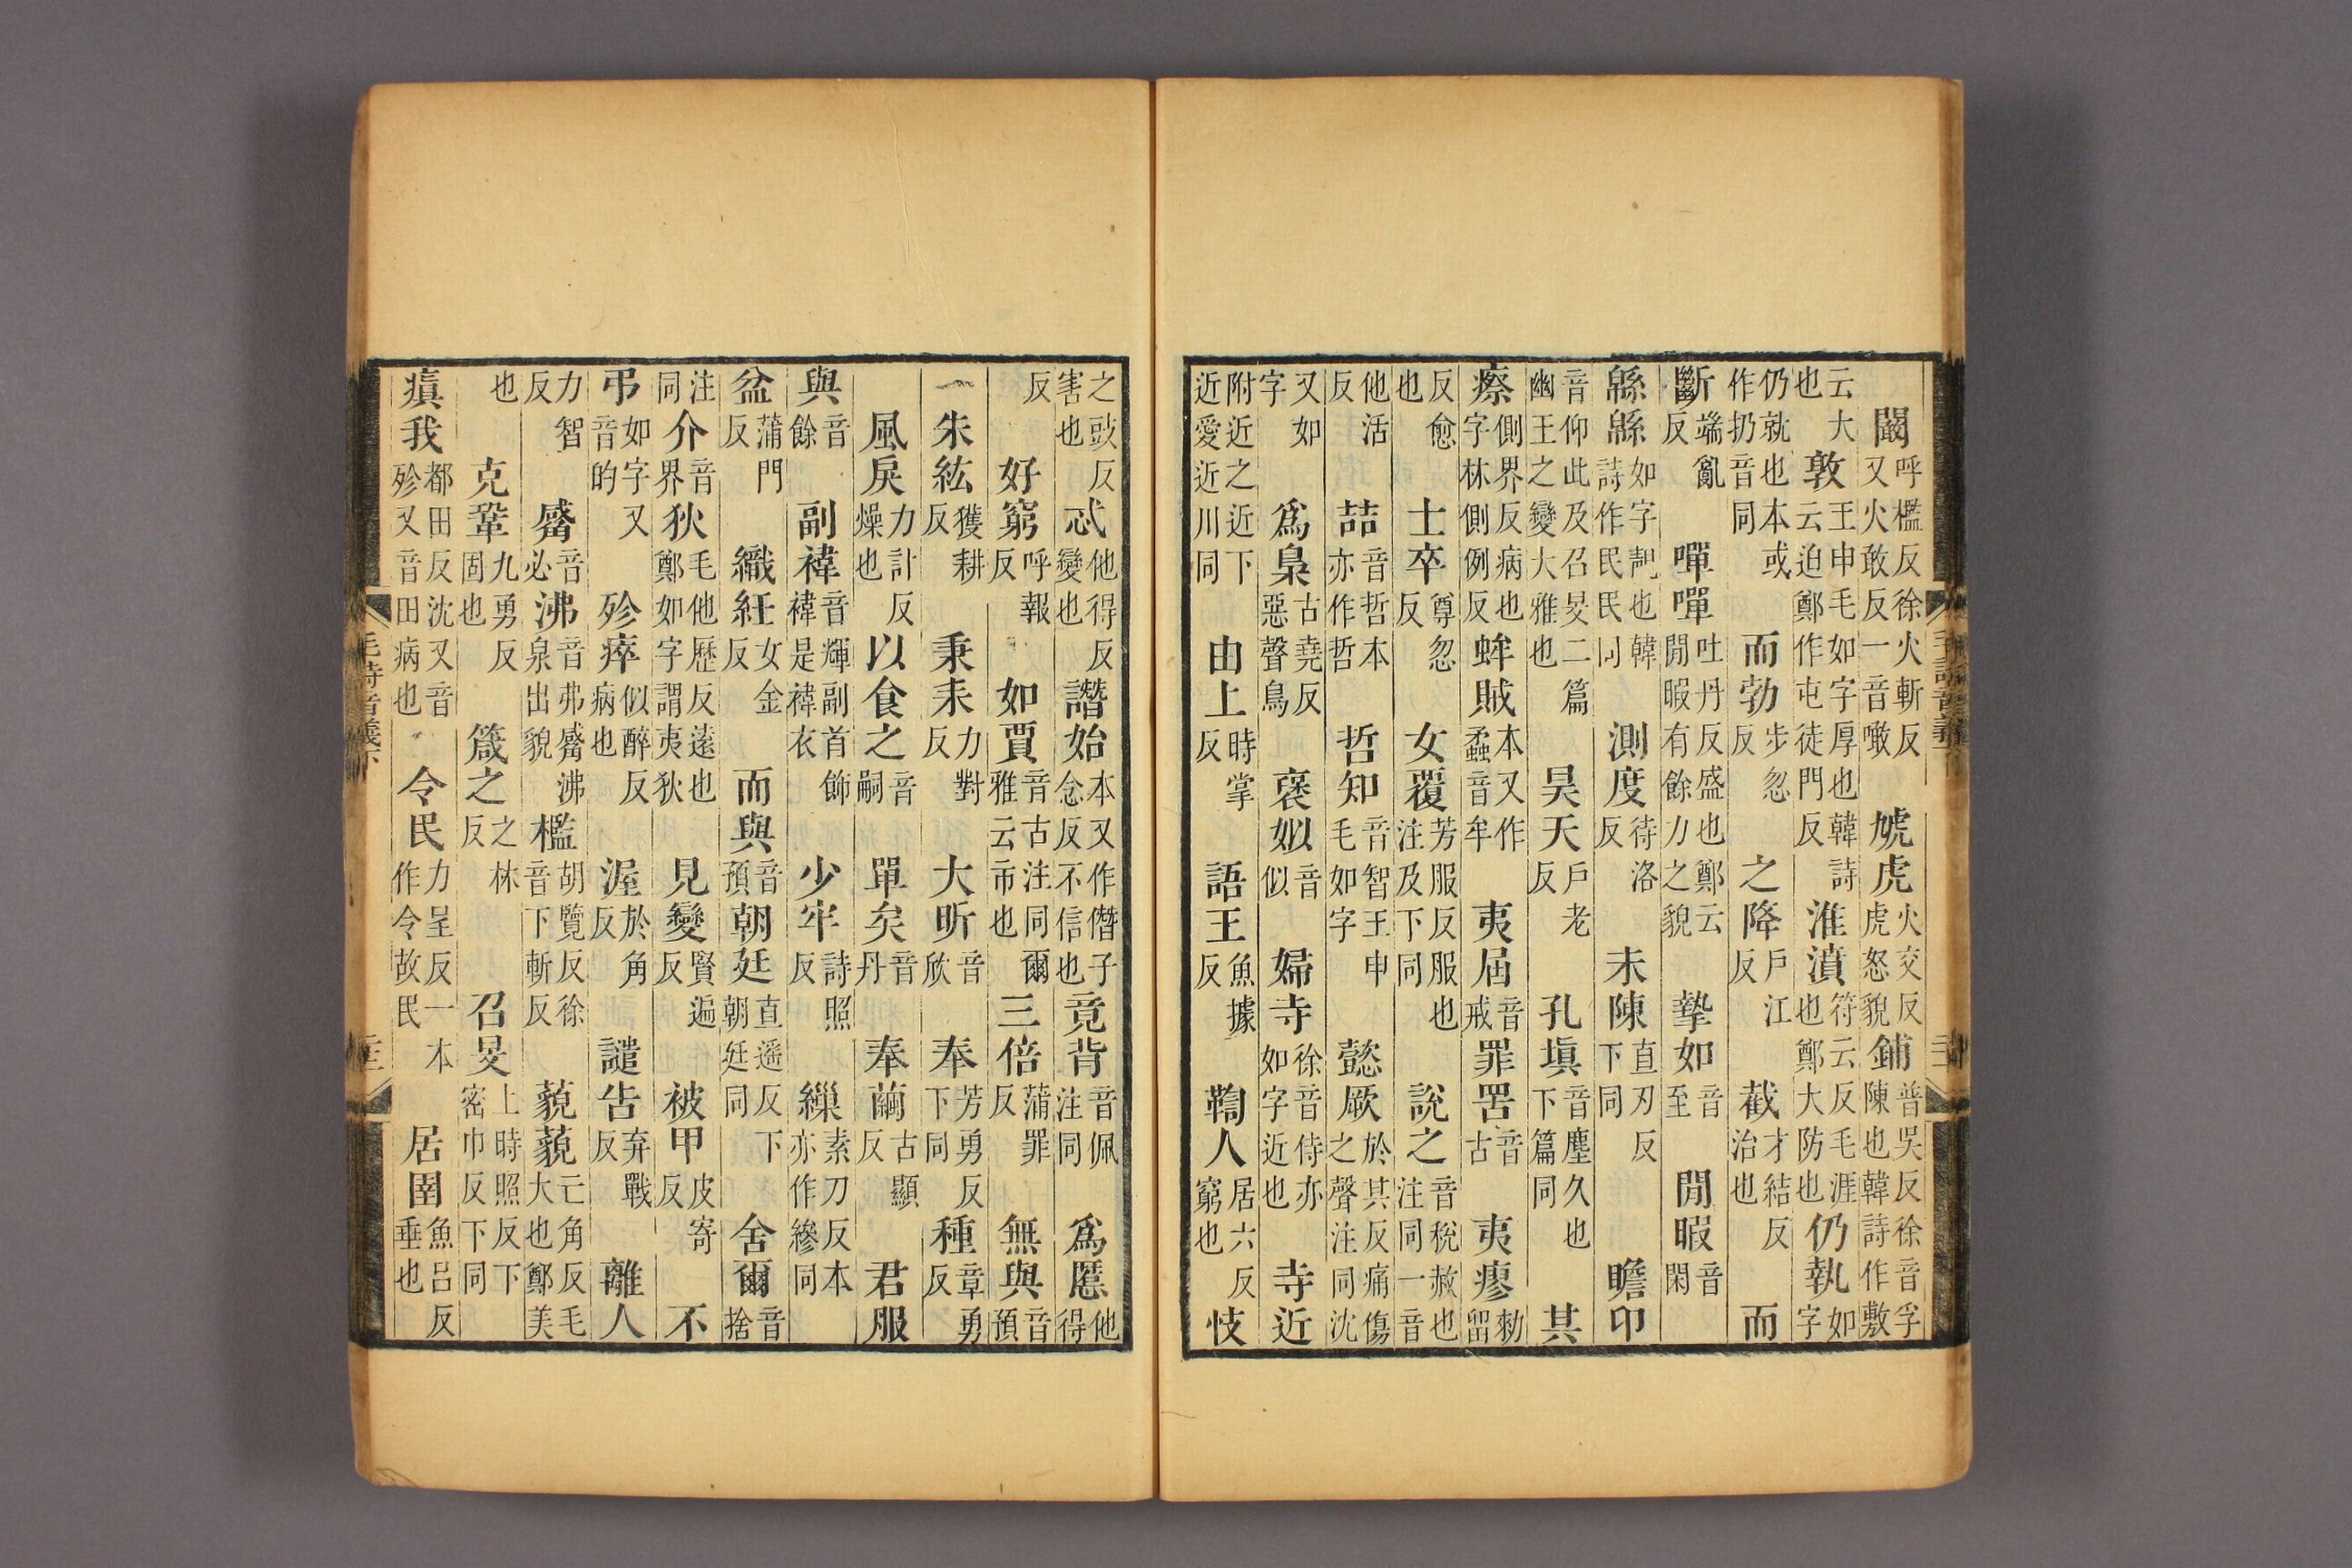 闞呼檻反徐火斬反又火敢反一音噉虓虎火交反虎怒貌鋪普吳反徐音孚陳也韓詩作敷
云大也敦王申毛如字厚也韓詩云迫鄭作屯徒門反淮濆符云反毛涯也鄭大防也仍執如字
仍就也本或作扔音同而勃步忽反之降戶江反截才結反治也而
斷端亂反嘽嘽吐丹反盛也鄭云閒暇有餘力之貌摯如音至閒暇音閑
緜緜如字靚也韓詩作民民同測度待洛反未陳直刃反下同瞻卬
音仰此及召旻二篇幽王之變大雅也昊天戶老反孔塡音塵久也下篇同其
瘵側界反病也字林側例反蛑賊本又作蟊音牟夷屆音戒罪罟音古夷瘳勑留
反愈也士卒尊忽反女覆芳服反服也注及下同說之音稅赦也注同一音
他活反喆音哲本亦作哲哲知音智王申毛如字懿厥於其反痛傷之聲注同沈
又如字爲梟古堯反惡聲鳥褒姒音似婦寺徐音侍亦如字近也寺近
附近之近下近愛近川同由上時掌反語王魚據反鞫人居六反窮也忮
之豉反害也忒他得反變也譖始本又作僭子念反不信也竟背音佩注同爲慝他得
反好窮呼報反如賈音古注同爾雅云市也三倍蒲罪反無與音預
一朱紘獲耕反秉耒力對反大昕音欣奉芳勇反下同種章勇
風戾力計反燥也以食之音嗣單矣音丹奉繭古顯反君服
與音餘副褘音輝副首飾褘是褘衣少牢詩照反繅素刀反本亦作縿同
盆蒲門反織紝女金反而與音預朝廷直遥反下朝廷同舍爾音捨
注同介音界狄毛他歷反遠也鄭如字謂夷狄見變賢遍反被甲皮寄反不
弔如字又音的殄瘁似醉反病也渥於角反譴告弃戰反離人
力智反觱音必沸音弗觱沸泉出貌檻胡覽反徐音下斬反藐藐亡角反毛大也鄭美
也克鞏九勇反固也箴之之林反召旻上時照反下密巾反下同
瘨我都田反沈又音殄又音田病也令民力呈反一本作令故民居圉魚呂反垂也
毛詩音義下